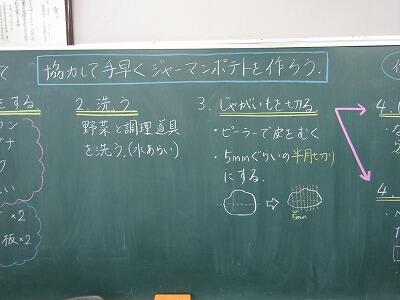 協力して手早くジャーマンポテトを作ろう.
て
をする
×2
板×2
2. 洗う
野菜と調理道具
を洗う.(水あらい)
3. じゃがいもを切る
・ピーラーで皮をむく
・5mmぐらいの半月切り
にする.
5mm
4.
4.